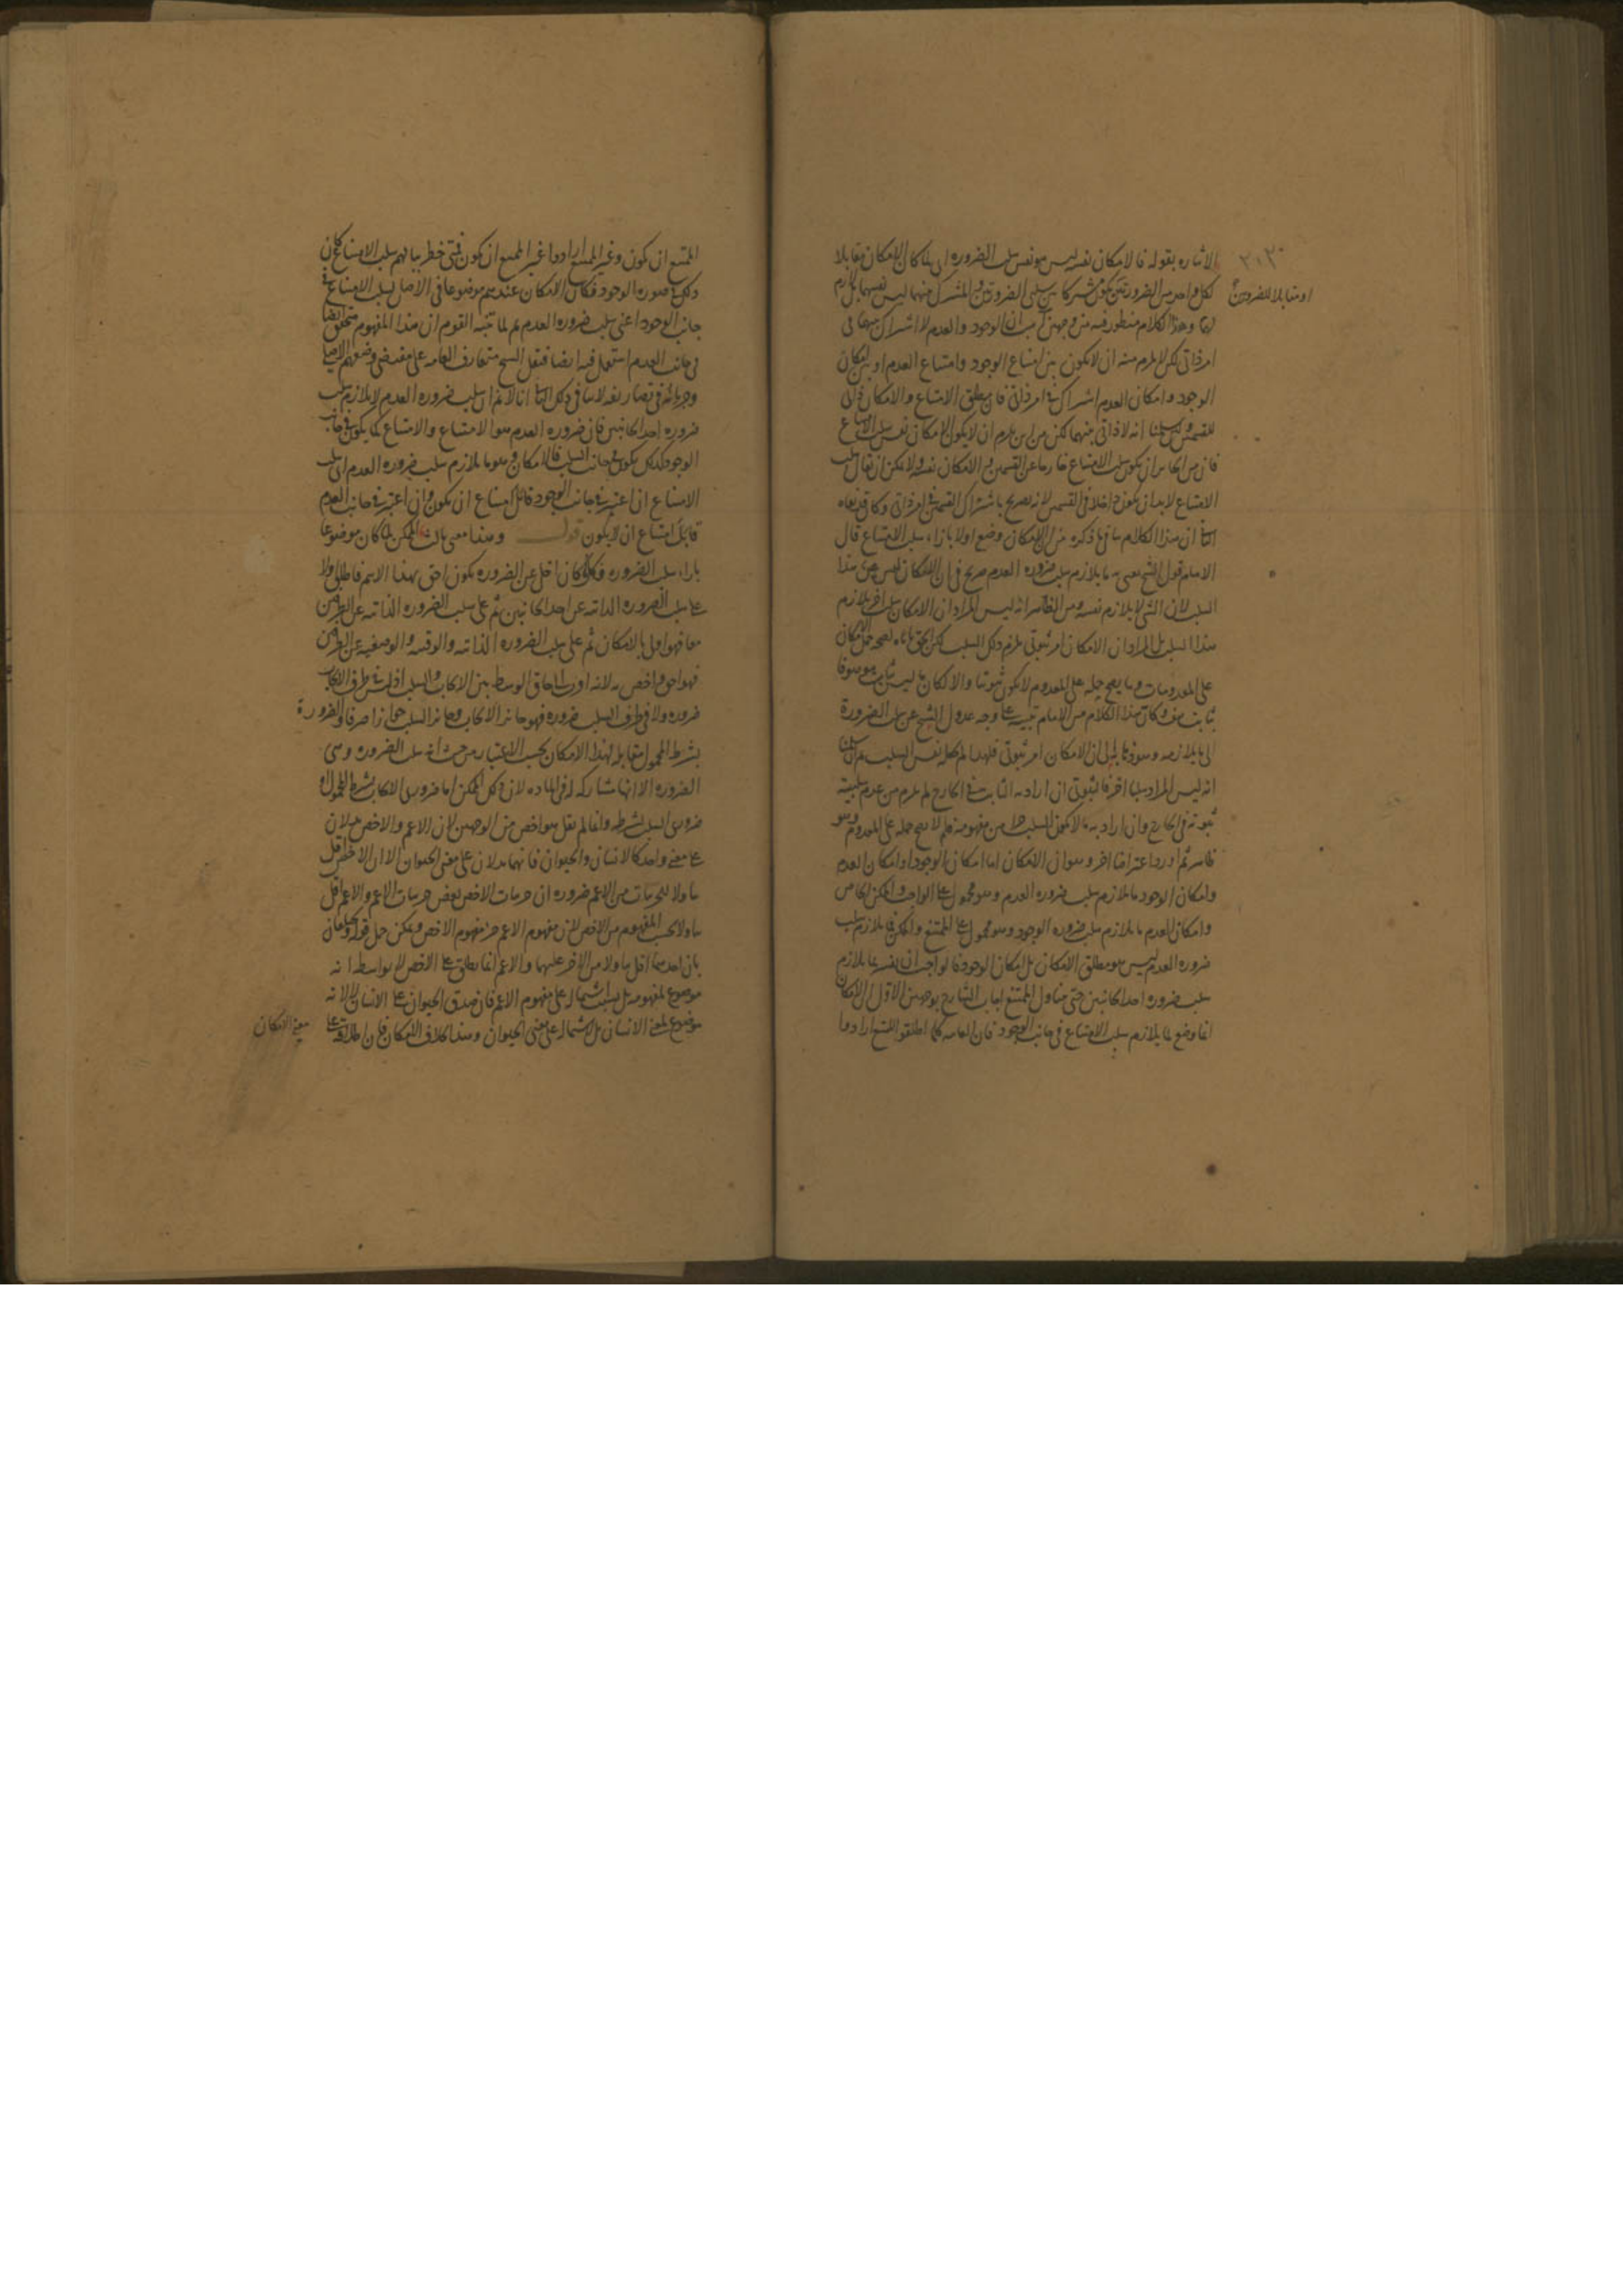 الاشاره بقوله فالامكان نفسه ليس هو نفس سلب الضروره اى لما كان الامكان مقابلا
لكل واحد من الضرورتين يكون مشتركا بين سلبى الضرورتين والمشترك منهما ليس نفسهما بل لازم
او مقابلا للضرورتين
وهذا الكلام منظور فيه من وجهين ان الوجود والعدم لا اشتراك بينهما فى
امر ذاتى لكن لا يلزم منه ان لا يكون بين امتناع الوجود وامتناع العدم او بين امكان
الوجود وامكان العدم اشتراك فى امر ذاتى فان مطلق الامتناع والامكان ذاتى
للقسمين ولئن سلمنا انه لا ذاتى بينهما لكن من اين يلزم ان لا يكون الامكان نفس سلب الامتناع
فان من الجايز ان يكون سلب الامتناع خارجا عن القسمين وهو الامكان نفسه ولا يمكن ان يقال سلب
الامتناع لا بد ان يكون داخلا فى القسمين لانه يصرح باشتراك القسمين فى امر ذاتى وكان قد نفاه
ان هذا الكلام ينافى ما ذكره من ان الامكان وضع اولا بازاء سلب الامتناع قال
الامام قول الشيخ يعنى به ما يلازم سلب ضروره العدم صريح فى ان الامكان ليس هو هذا
السلب لان الشى لا يلازم نفسه ومن الظاهر انه ليس المراد ان الامكان سلب اخر يلازم
هذا السلب بل المراد ان الامكان امر ثبوتى يلزم ذلك السلب لكن الحق يأباه لصحه حمل الامكان
على المعدومات وما يصح حمله على المعدوم لا يكون ثبوتيا والا لكان ما ليس بثابت موصوفا
بثابت وكان هذا الكلام من الامام تنبيه على وجه عدول الشيخ عن سلب الضرورة
الى ما يلازمه وهو ذهابه الى ان الامكان امر ثبوتى فلهذا لم يجعله نفس السلب
انه ليس المراد سلبا اخر فالثبوتى ان اراد به الثابت فى الخارج لم يلزم من عدم سلبيته
ثبوته فى الخارج وان اراد به ما لا يكون السلب جزءا من مفهومه فلم لا يصح حمله على المعدوم وهو
ظاهر ثم اورد اعتراضا اخر وهو ان الامكان اما امكان الوجود او امكان العدم
وامكان الوجود ما يلازم سلب ضروره العدم وهو محمول على الواجب والممكن الخاص
وامكان العدم ما يلازم سلب ضروره الوجود وهو محمول على الممتنع والممكن فما يلازم سلب
ضروره العدم ليس هو مطلق الامكان بل امكان الوجود فالواجب ان يفسر بما يلازم
سلب ضروره احد الجانبين حتى يتناول الممتنع اجاب الشارح بوجهين الاول ان الامكان
انما وضع لما يلازم سلب الامتناع فى جانب الوجود فان العامه كلما اطلقوا الممتنع ارادوا
الممتنع ان يكون وغير الممتنع ارادوا غير الممتنع ان يكون فمتى خطر ببالهم سلب الامتناع كان
ذلك فى صوره الوجود فكان الامكان عندهم موضوعا فى الاصل لسلب الامتناع فى
جانب الوجود اعنى سلب ضروره العدم ثم لما تنبه القوم ان هذا المفهوم متحقق ايضا
فى جانب العدم استعمل فيه ايضا فنقل الشيخ متعارف العامه على مقتضى وضعهم الاصلى
وجريانه فى تصاريفه لا ينافى ذلك انا لا نم ان سلب ضروره العدم لا يلازم سلب
ضروره احد الجانبين فان ضروره العدم هو الامتناع والامتناع كما يكون فى جانب
الوجود كذلك يكون فى جانب السلب فالامكان وهو ما يلازم سلب ضروره العدم اى سلب
الامتناع ان اعتبر فى جانب الوجود قابل امتناع ان يكون وان اعتبر فى جانب العدم
قابل امتناع ان لا يكون قوله وهذا معنى ثالث الممكن لما كان موضوعا
بازاء سلب الضروره فكلما كان اخلى عن الضروره يكون احق بهذا الاسم فاطلق اولا
على سلب الضروره الذاتيه عن احد الجانبين ثم على سلب الضروره الذاتيه عن الطرفين
معا فهو اولى بالامكان ثم على سلب الضروره الذاتيه والوقتيه والوصفيه عن الطرفين
فهو احق واخص به لانه اقرب الى حاق الوسط بين الايجاب والسلب اذ ليس فى طرف الايجاب
ضروره ولا فى طرف السلب ضروره فهو جايز الايجاب وجايز السلب جوازا صرفا والضرورة
بشرط المحمول مقابله لهذا الامكان بحسب الاعتبار من حيث انه سلب الضروره وهى
الضروره الا انها مشاركه له فى الماده لان كل ممكن اما ضرورى الايجاب بشرط المحمول او
ضرورى السلب بشرطه وانما لم يقل هو اخص من الوجهين لان الاعم والاخص يدلان
على معنى واحد كالانسان والحيوان فانهما يدلان على معنى الحيوان الا ان الاخص اقل
تناولا للجزئيات من الاعم ضروره ان جزئيات الاخص بعض جزئيات الاعم والاعم اقل
تناولا بحسب المفهوم من الاخص لان مفهوم الاعم جزء مفهوم الاخص ويمكن حمل قوله
بان احدهما اقل تناولا من الاخر عليهما والاعم انما يطلق على الاخص لا بواسطه انه
موضوع لمفهومه بل بسبب اشتماله على مفهوم الاعم فان صدق الحيوان على الانسان لا لانه
موضوع لمعنى الانسان بل لاشتماله على معنى الحيوان وهذا بخلاف الامكان فان اطلاقه على
معنى الامكان